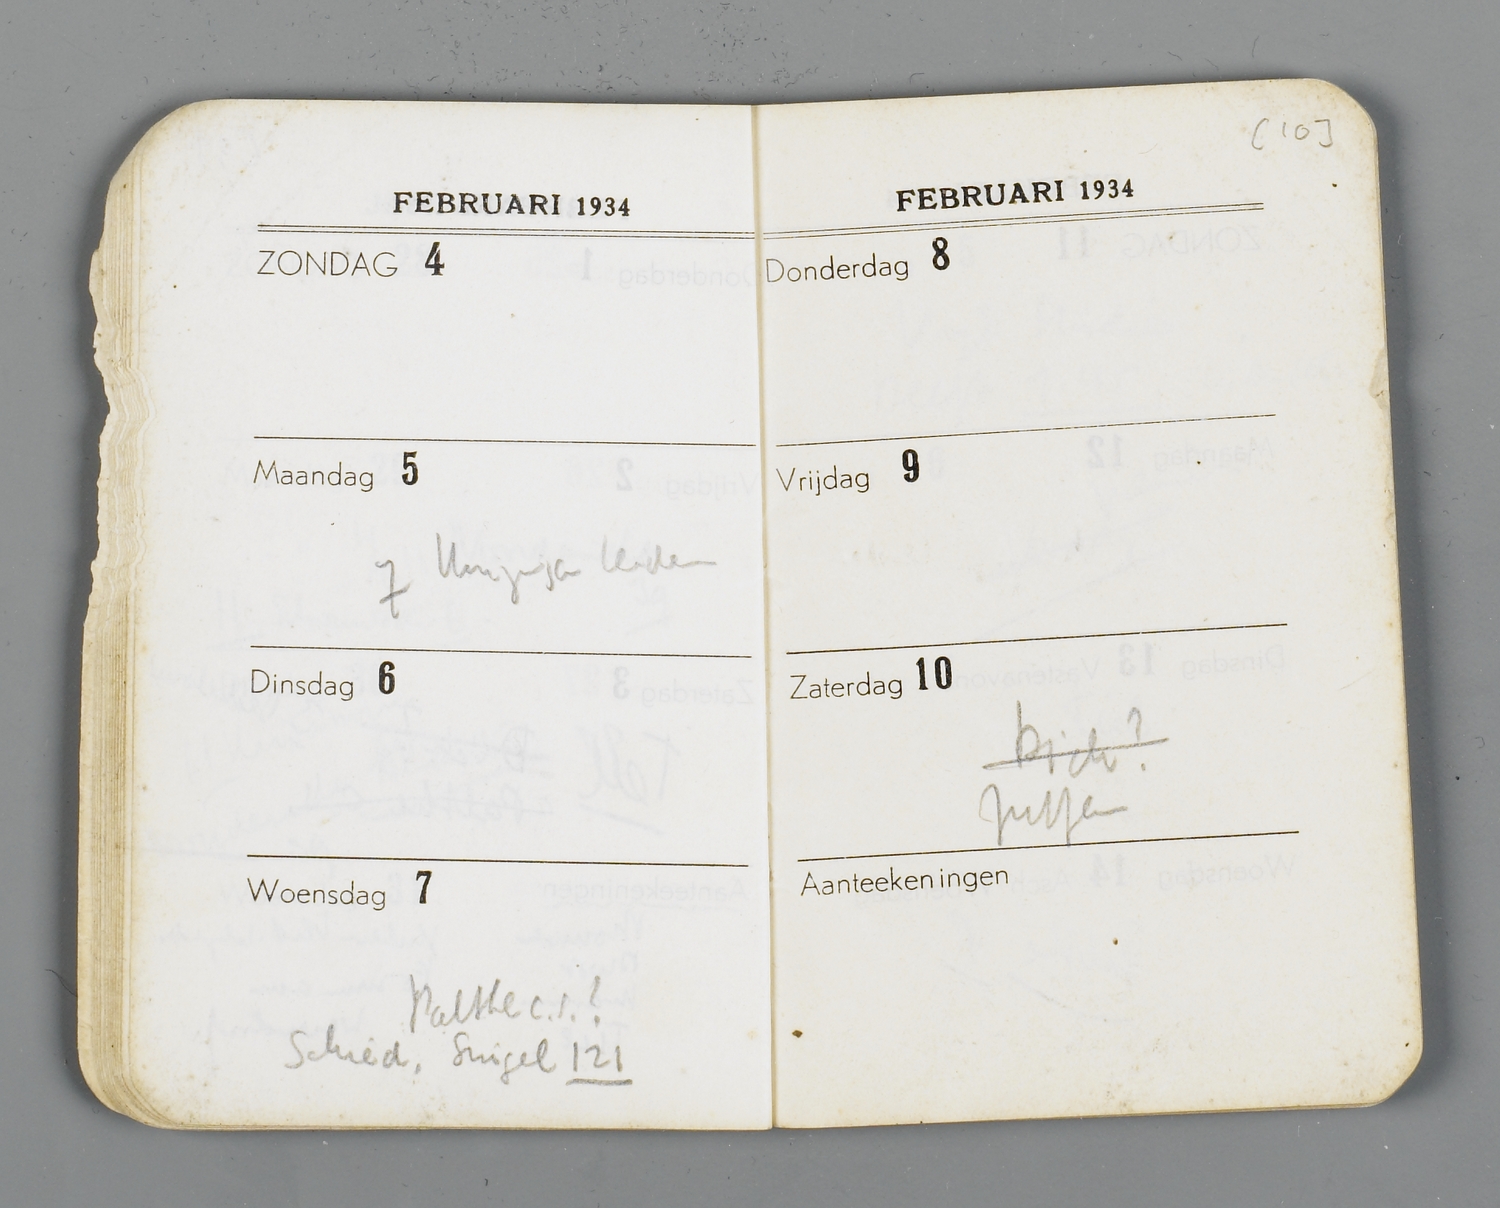 FEBRUARI 1934
ZONDAG 4
Maandag 5
7
Dinsdag 6
Woensdag 7
Palthe c.s.?
Schied, Singel 121
[10]
FEBRUARI 1934
Donderdag 8
Vrijdag 9
Zaterdag 10
Aanteekeningen